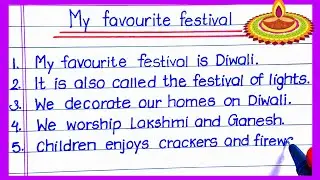 My favourite festival
1. My favourite festival is Diwali.
2. It is also called the festival of lights.
3. We decorate our homes on Diwali.
4. We worship Lakshmi and Ganesh.
5. Children enjoys crackers and firew